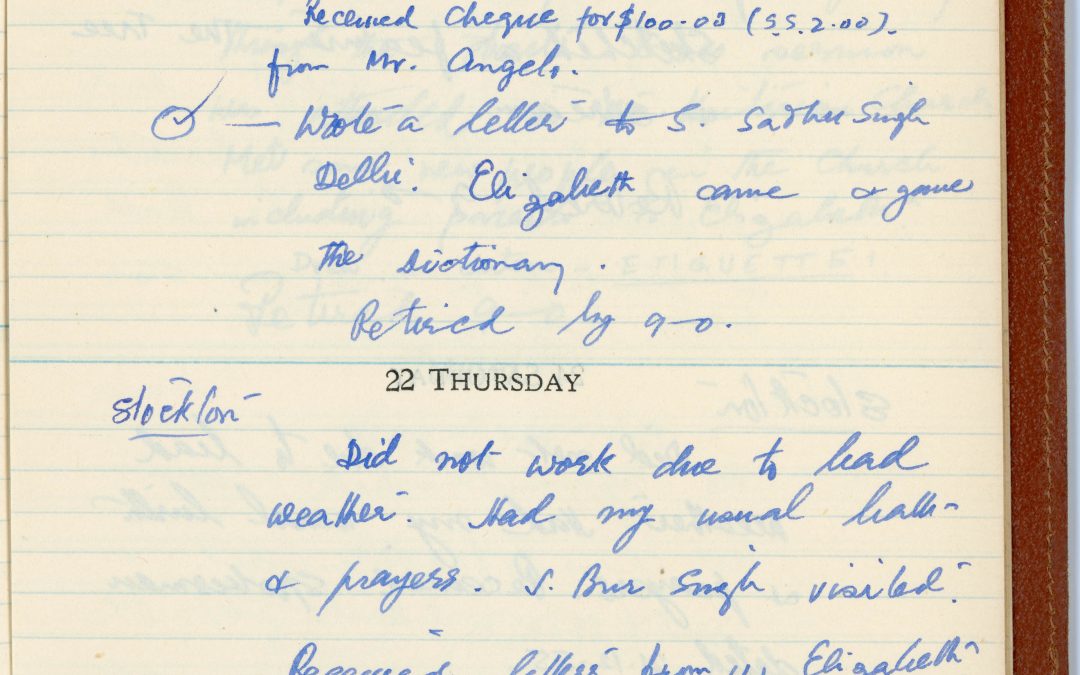 Received Cheque for $100.00 (S.S. 2.00).
from Mr. Angelo.
— Wrote a letter to S. Sadhu Singh
Delhi. Elizabeth came & gave
the Dictionary.
Retired by 9-0.
22 THURSDAY
Stockton
Did not work due to bad
weather. Had my usual bath
& prayers. S. Bur Singh visited.
Received letter from Elizabeth